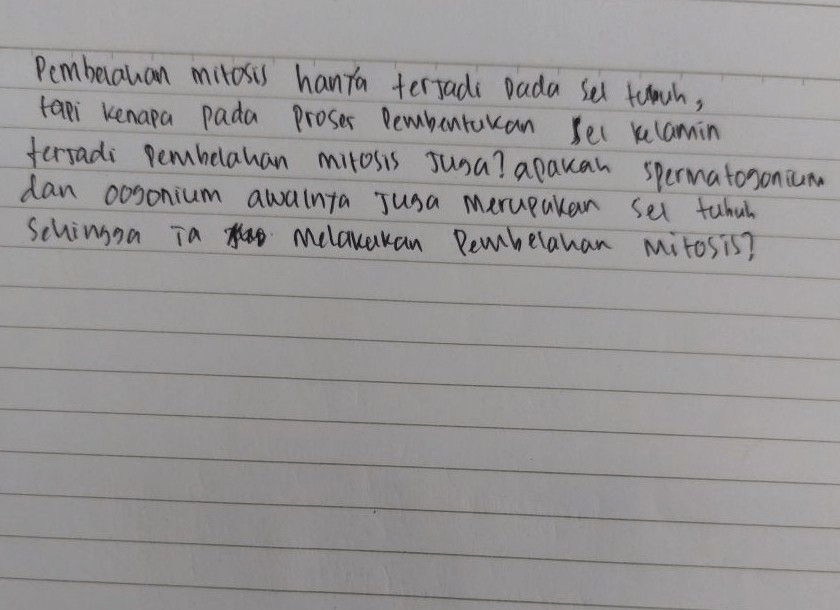 Pembelahan mitosis hanya terjadi pada sel tubuh,
tapi kenapa pada proses pembentukan sel kelamin
terjadi pembelahan mitosis juga? apakah spermatogonium
dan oogonium awalnya juga merupakan sel tubuh
sehingga ia melakukan pembelahan mitosis?